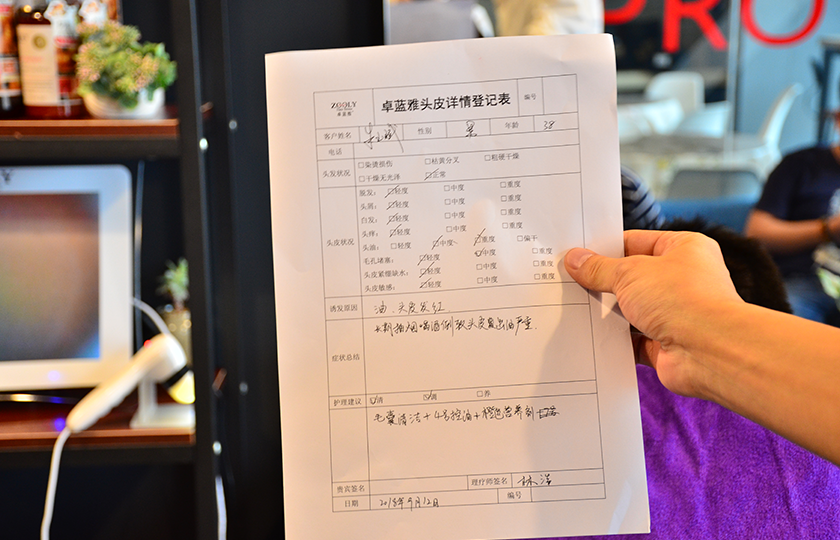 PRO
ZGOLY
卓蓝雅
卓蓝雅头皮详情登记表 编号
客户姓名 性别 男 年龄 38
电话
头发状况 □染烫损伤 □枯黄分叉 □粗硬干燥
□干燥无光泽 ☑正常
头皮状况
脱发: ☑轻度 □中度 □重度
头屑: ☑轻度 □中度 □重度
白发: ☑轻度 □中度 □重度
头痒: ☑轻度 □中度 □重度
头油: □轻度 ☑中度 ☑重度 □偏干
毛孔堵塞: ☑轻度 ☑中度 □重度
头皮紧绷缺水: ☑轻度 □中度 □重度
头皮敏感: ☑轻度 □中度 □重度
诱发原因 油、头皮发红
症状总结 长期抽烟喝酒导致头皮出油严重.
护理建议 ☑清 ☑调 □养
毛囊清洁+4号控油+橙色营养剂
贵宾签名 理疗师签名 林洋
日期 2018年9月12日 编号